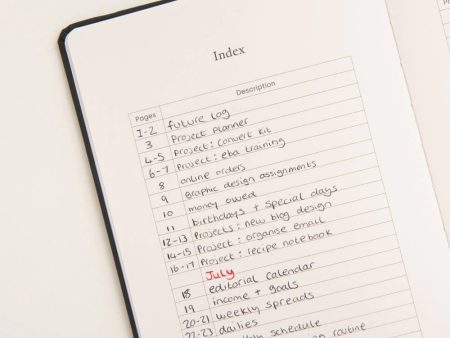 Index
Pages Description
1-2 future log
3 Project Planner
4-5 Project: convert kit
6-7 Project: eba training
8 online orders
9 graphic design assignments
10 money owed
11 birthdays + special days
12-13 Projects: new blog design
14-15 Project: organise email
16-17 Project: recipe notebook
July
18 editorial calendar
19 income + goals
20-21 weekly spreads
22-23 dailies
schedule
routine